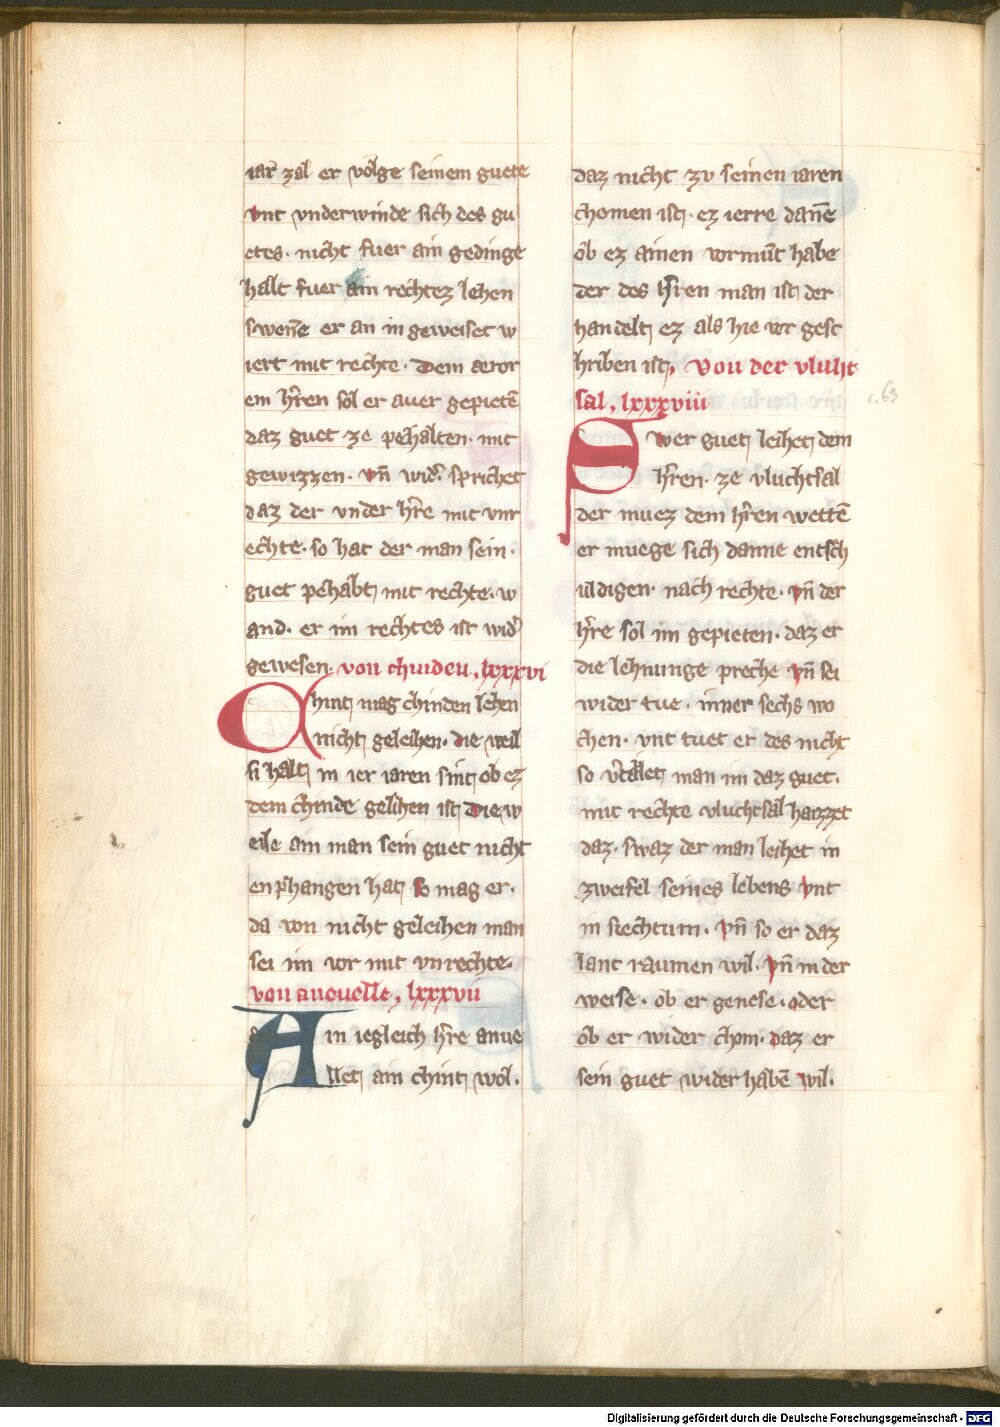 iar zal er volge seinem guete
vnt vnderwinde sich des gu
etes. nicht fuer ain gedinge
halt fuer ain rechtez lehen
swenne er an in geweiset w
iert mit rechte. Dem aeror
em hr̄en sol er auer gepietē
daz guet ze pehalten. mit
gewizzen. vn̄ wid̾ sprichet
daz der vnder hr̄e mit vnr
echte. so hat der man sein.
guet pehabt mit rechte. w
and. er im rechtes ist wid̾
gewesen. von chinden, lxxxvi
Chint mag chinden lehen
nicht geleihen. die weil
si halt in ier iaren sint ob ez
dem chinde gelihen ist Die w
eile ain man sein guet nicht
enphangen hat so mag er.
da von nicht geleihen man
sei im vor mit vnrechte.
von anevelle, lxxxvii
Ain iegleich hr̄e anue
llet ain chint wol.
daz nicht zv seinen iaren
chomen ist. ez ierre dan̄e
ob ez ainen vormūt habe
der des hr̄ren man ist der
handelt ez als hie vor gesc
hriben ist, von der vluht
sal, lxxxviii
c. 63
Swer guet leihet dem
hr̄ren. ze vluchtsal
der muez dem hr̄ren wettē
er muege sich danne entsch
uldigen. nach rechte. vn̄ der
hr̄re sol im gepieten. daz er
die lehnunge preche vn̄ sei
wider tue. inner sechs wo
chen. vnt tuet er des nicht
so v̾tailet man im daz guet.
mit rechte vluchtsal haizzet
daz. swaz der man leihet in
zweifel seines lebens vnt
in siechtum. vn̄ so er daz
lant raumen wil. vn̄ in der
weise. ob er genese. oder
ob er wider chom. daz er
sein guet wider habē wil.
Digitalisierung gefördert durch die Deutsche Forschungsgemeinschaft - DFG